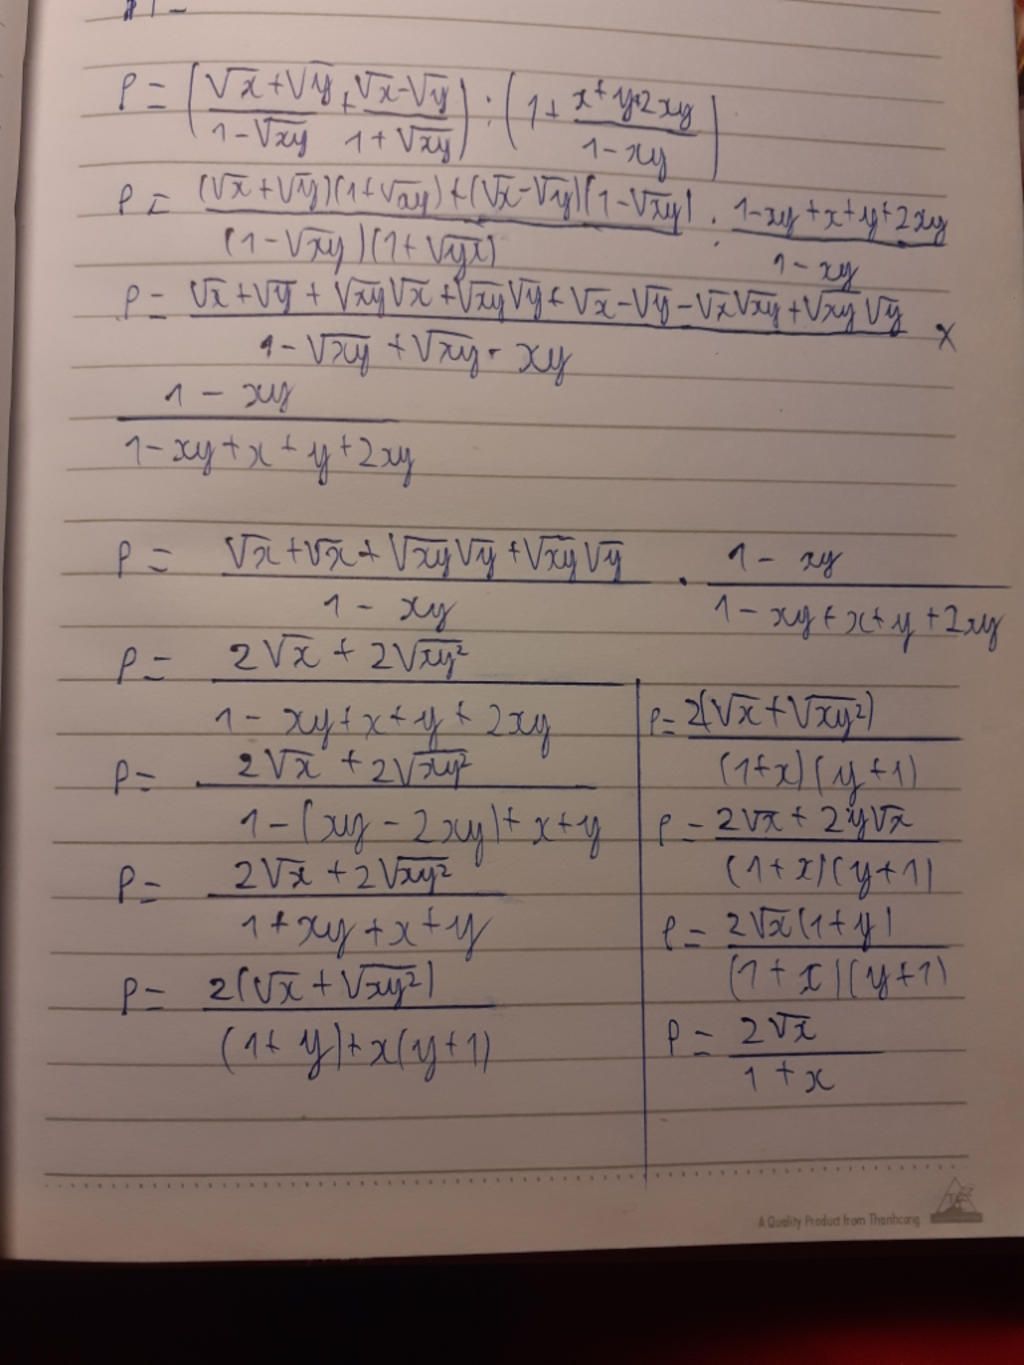 P = (\frac{√x+√y}{1-√xy} + \frac{√x-√y}{1+√xy}) : (1 + \frac{x+y+2xy}{1-xy})
P = \frac{(√x+√y)(1+√xy)+(√x-√y)(1-√xy)}{(1-√xy)(1+√yx)} : \frac{1-xy+x+y+2xy}{1-xy}
P = \frac{√x+√y+√xy√x+√xy√y+√x-√y-√x√xy+√xy√y}{1-√xy+√xy-xy} ×
\frac{1-xy}{1-xy+x+y+2xy}
P = \frac{√x+√x+√xy√y+√xy√y}{1-xy} . \frac{1-xy}{1-xy+x+y+2xy}
P = \frac{2√x+2√xy²}{1-xy+x+y+2xy}
P = \frac{2√x+2√xy²}{1-(xy-2xy)+x+y}
P = \frac{2√x+2√xy²}{1+xy+x+y}
P = \frac{2(√x+√xy²)}{(1+y)+x(y+1)}
P = \frac{2(√x+√xy²)}{(1+x)(y+1)}
P = \frac{2√x+2y√x}{(1+x)(y+1)}
P = \frac{2√x(1+y)}{(1+x)(y+1)}
P = \frac{2√x}{1+x}
A Quality Product from Thanhcong